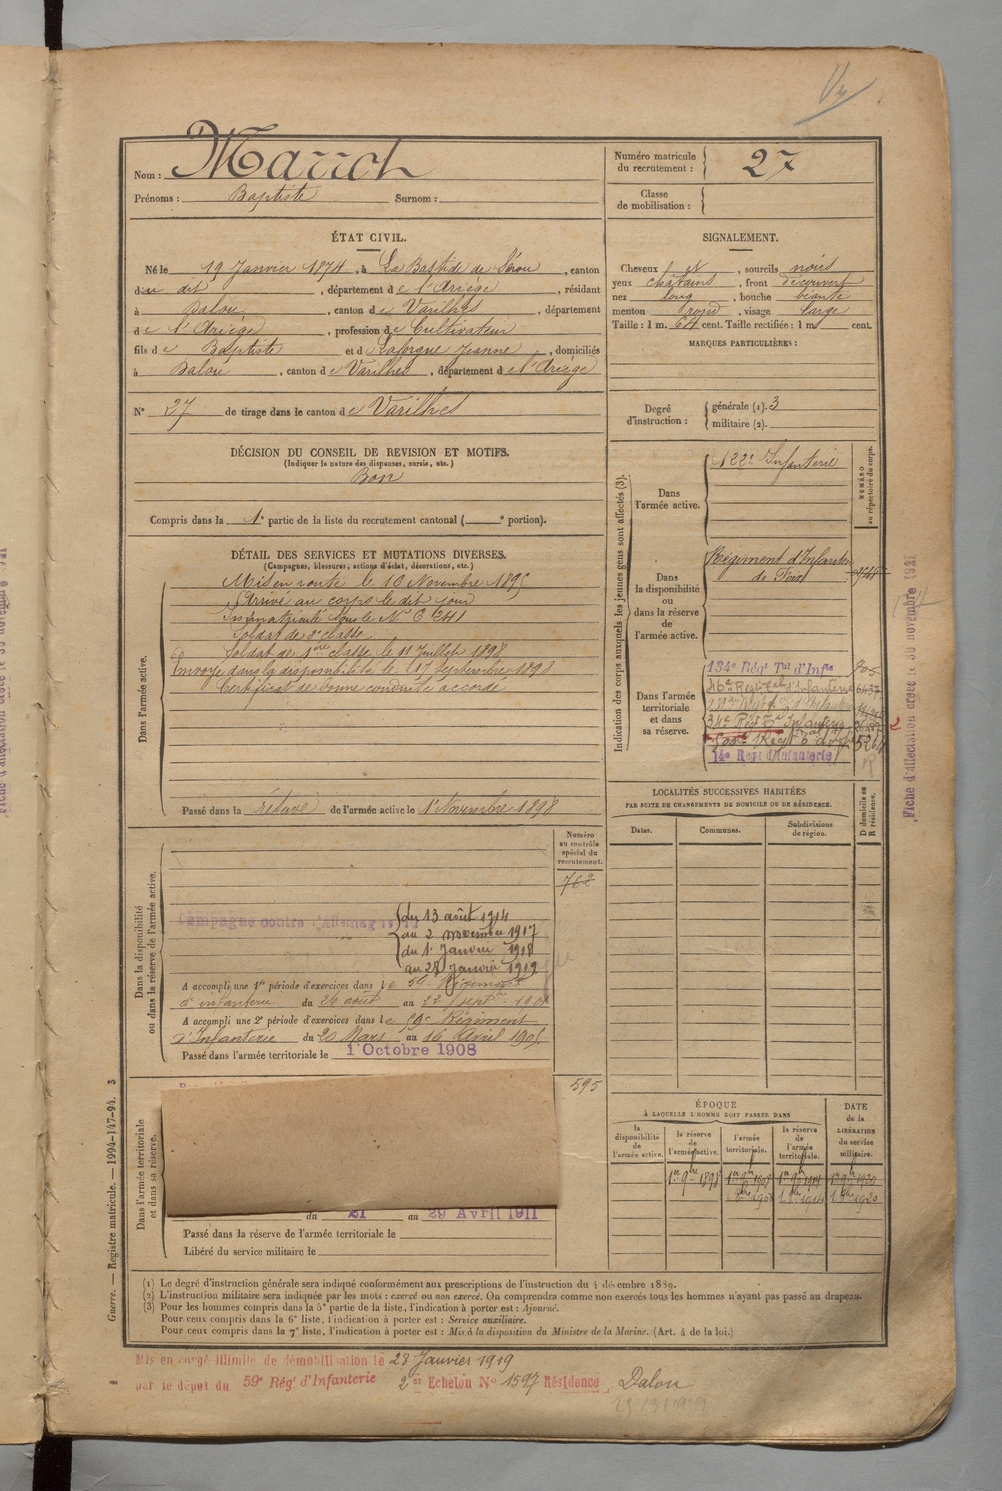 Nom : Marrot
Prénoms : Baptiste Surnom :
Numéro matricule du recrutement : 27
Classe de mobilisation :
ÉTAT CIVIL.
Né le 19 Janvier 1874, à La Bastide de Sérou, canton
du dit, département de l'Ariège, résidant
à Dalou, canton de Varilhes, département
de l'Ariège, profession de Cultivateur
fils de Baptiste et de Laforgue Jeanne, domiciliés
à Dalou, canton de Varilhes, département de l'Ariège
N° 27 de tirage dans le canton de Varilhes
SIGNALEMENT.
Cheveux et, sourcils noirs
yeux châtains, front découvert
nez long, bouche béante
menton rond, visage large
Taille : 1 m. 64 cent. Taille rectifiée : 1 m. cent.
MARQUES PARTICULIÈRES :
Degré d'instruction : générale (1). 3
militaire (2).
DÉCISION DU CONSEIL DE REVISION ET MOTIFS.
(Indiquer la nature des dispenses, sursis, etc.)
Bon
Compris dans la 1e partie de la liste du recrutement cantonal ( e portion).
DÉTAIL DES SERVICES ET MUTATIONS DIVERSES.
(Campagnes, blessures, actions d'éclat, décorations, etc.)
Dans l'armée active.
Mis en route le 16 Novembre 1895
Arrivé au corps le dit jour
Immatriculé sous le N° E 1241
Soldat de 2e classe
Soldat de 1ère classe le 11 Juillet 1898
Envoyé dans la disponibilité le 17 Septembre 1898
Certificat de bonne conduite accordé
Passé dans la réserve de l'armée active le 1er Novembre 1898
Indication des corps auxquels les jeunes gens sont affectés (3).
NUMÉRO au répertoire du corps.
Dans l'armée active.
122e Infanterie
Dans la disponibilité ou dans la réserve de l'armée active.
Régiment d'Infanterie
de Foix
Dans l'armée territoriale et dans sa réserve.
134e Régt Tal d'Infie 805
34e Régt Tal Infanterie
14e Regt d'Infanterie
LOCALITÉS SUCCESSIVES HABITÉES
PAR SUITE DE CHANGEMENTS DE DOMICILE OU DE RÉSIDENCE.
Dates. Communes. Subdivisions de région. D domicile ou R résidence.
Numéro au contrôle spécial du recrutement.
762
Dans la disponibilité ou dans la réserve de l'armée active.
Campagne contre l'Allemagne du 13 août 1914
au 2 novembre 1917
du 1er Janvier 1918
au 28 Janvier 1919
A accompli une 1re période d'exercices dans le 59e Régiment
d'infanterie du 26 août au 22 Septre
A accompli une 2e période d'exercices dans le 59e Régiment
d'Infanterie du 20 Mars au 16 Avril 1905
Passé dans l'armée territoriale le 1er Octobre 1908
595
Dans l'armée territoriale et dans sa réserve.
du 21 au 29 Avril 1911
Passé dans la réserve de l'armée territoriale le
Libéré du service militaire le
ÉPOQUE
À LAQUELLE L'HOMME DOIT PASSER DANS
la disponibilité de l'armée active. la réserve de l'armée active. l'armée territoriale. la réserve de l'armée territoriale.
DATE de la LIBÉRATION du service militaire.
1er 9bre 1898 1er 9bre 1908 1er 9bre 1914 1er 9bre 1920
1 8bre 1908 1 8bre 1914 1 8bre 1920
(1) Le degré d'instruction générale sera indiqué conformément aux prescriptions de l'instruction du 4 décembre 1889.
(2) L'instruction militaire sera indiquée par les mots : exercé ou non exercé. On comprendra comme non exercés tous les hommes n'ayant pas passé au drapeau.
(3) Pour les hommes compris dans la 5e partie de la liste, l'indication à porter est : Ajourné.
Pour ceux compris dans la 6e liste, l'indication à porter est : Service auxiliaire.
Pour ceux compris dans la 7e liste, l'indication à porter est : Mis à la disposition du Ministre de la Marine. (Art. 4 de la loi.)
Guerre. — Registre matricule. — 1994-147-94. 3
Mis en congé illimité de démobilisation le 28 Janvier 1919
par le dépôt du 59e Régt d'Infanterie 2e Echelon N° 1597 Résidence Dalou
Fiche d'affectation créée le 30 novembre 1921